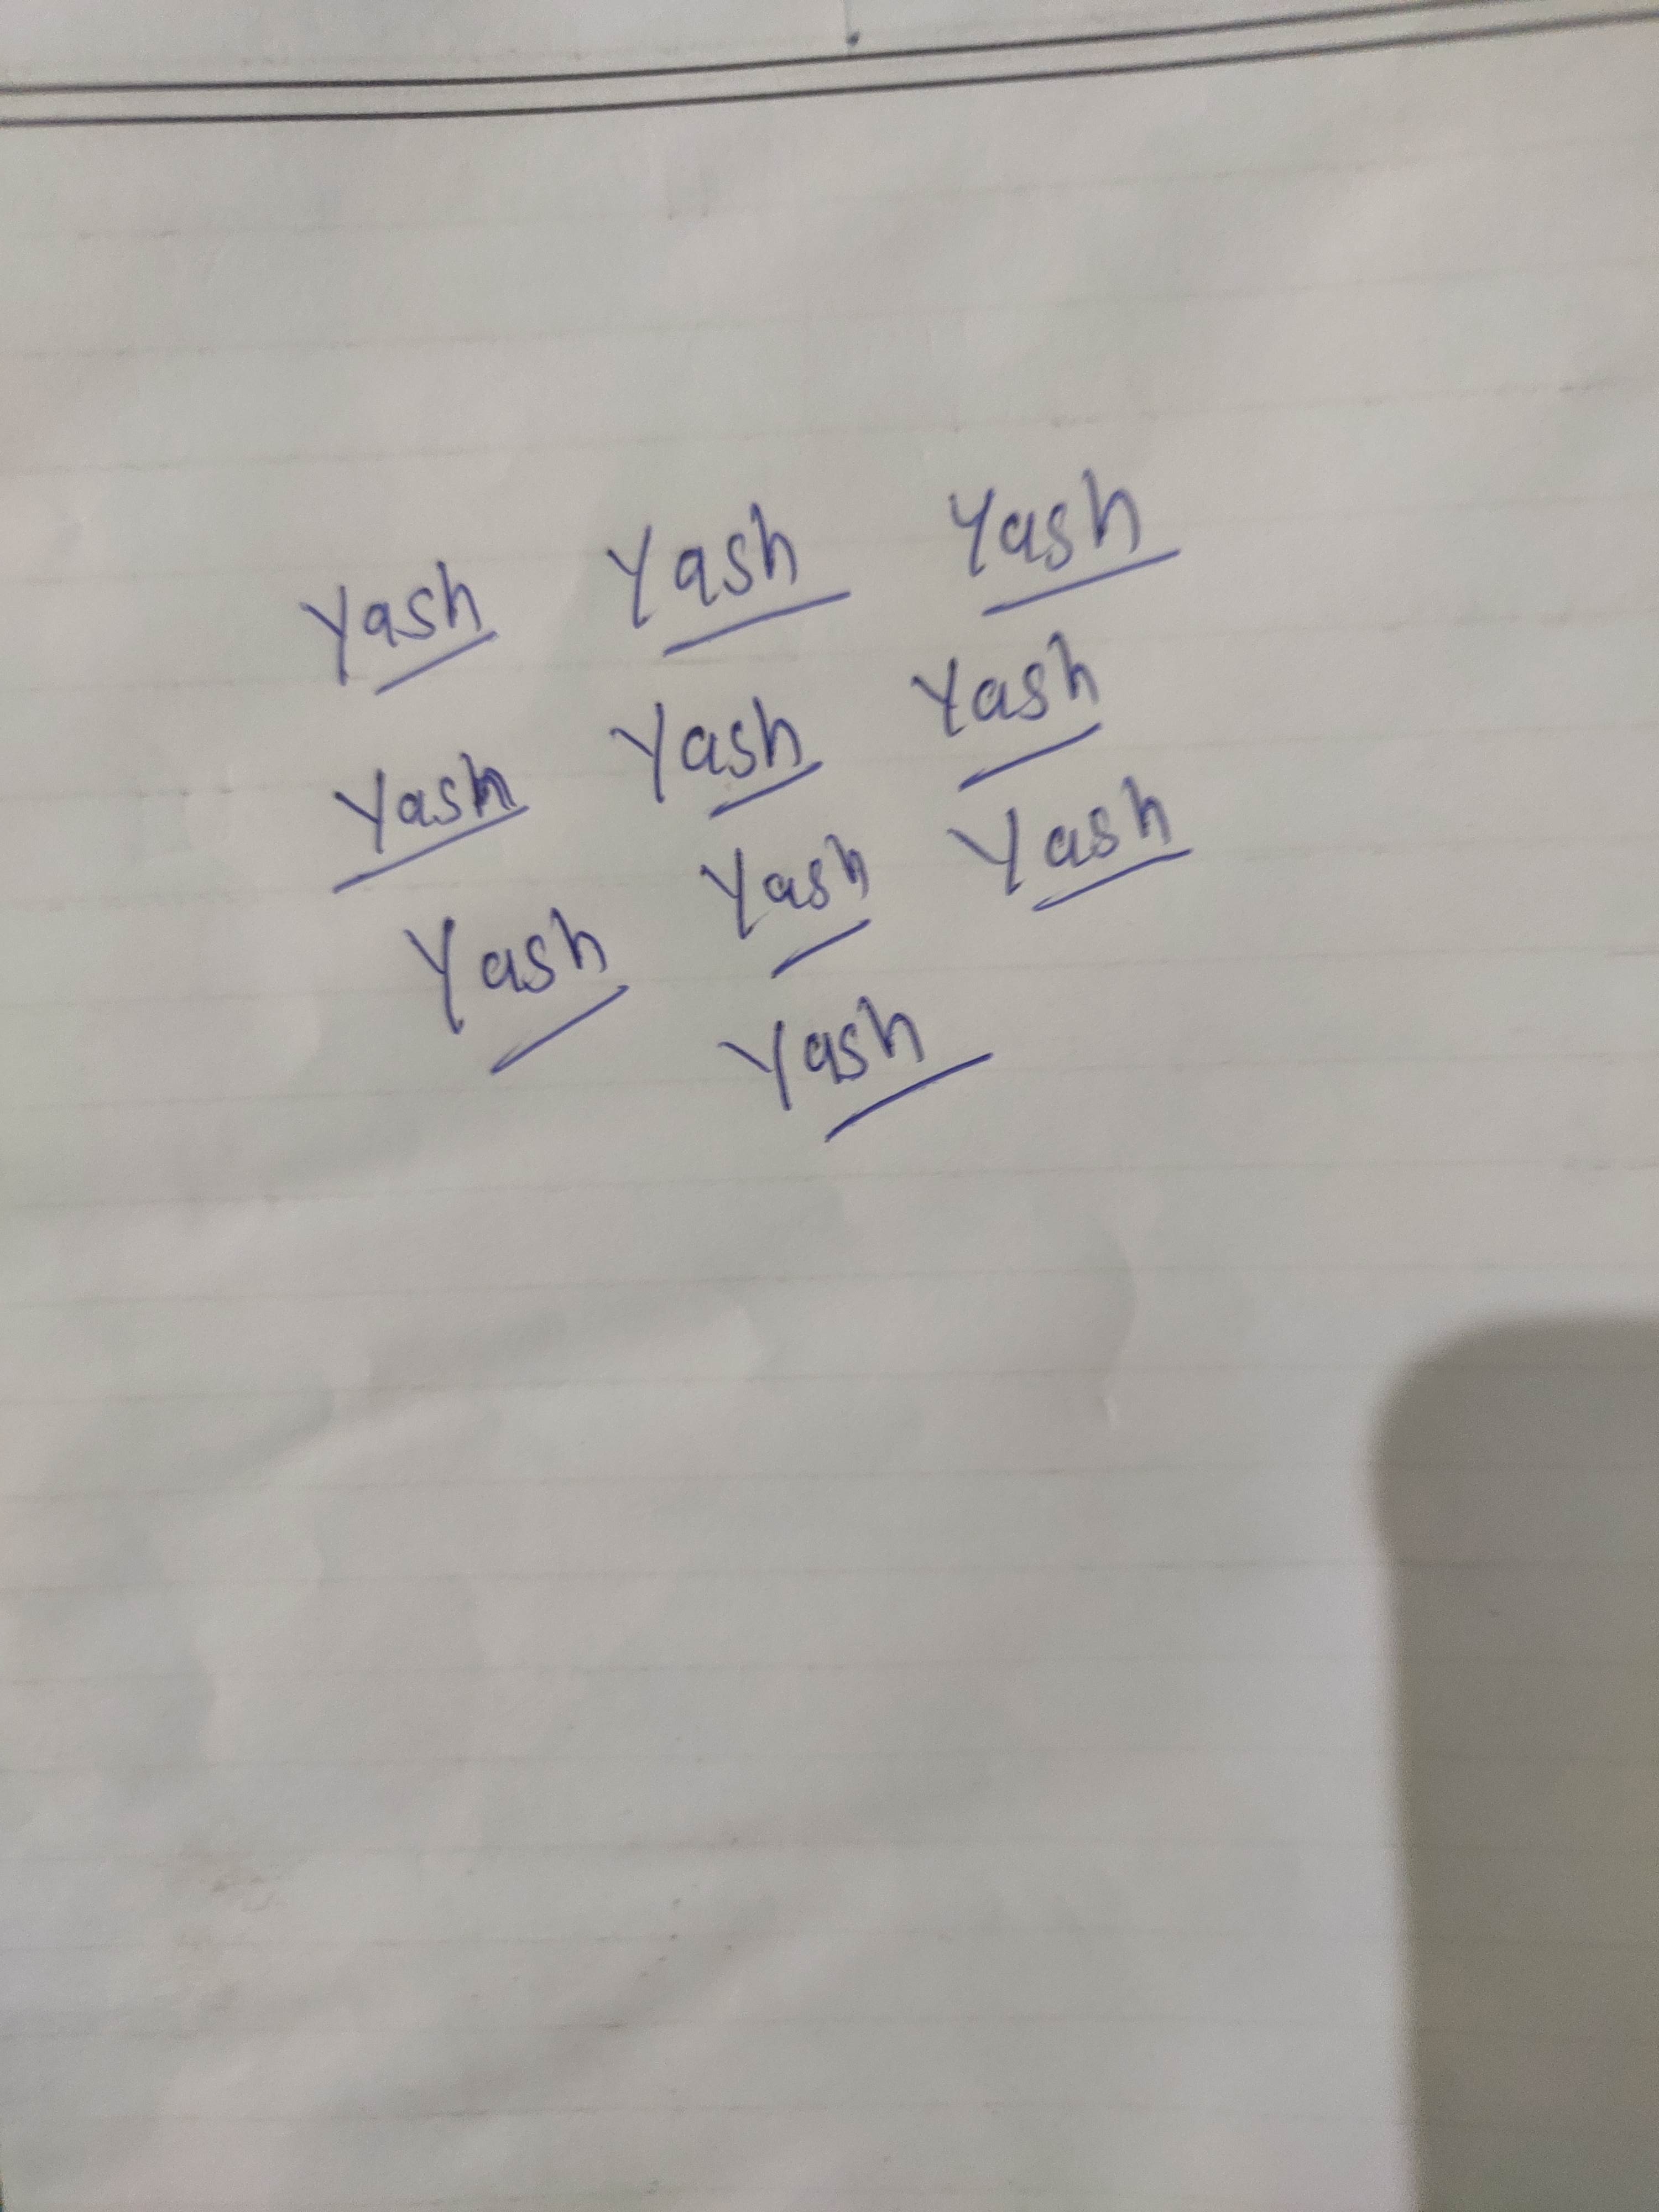 Yash Yash Yash
Yash Yash Yash
Yash Yash Yash
Yash